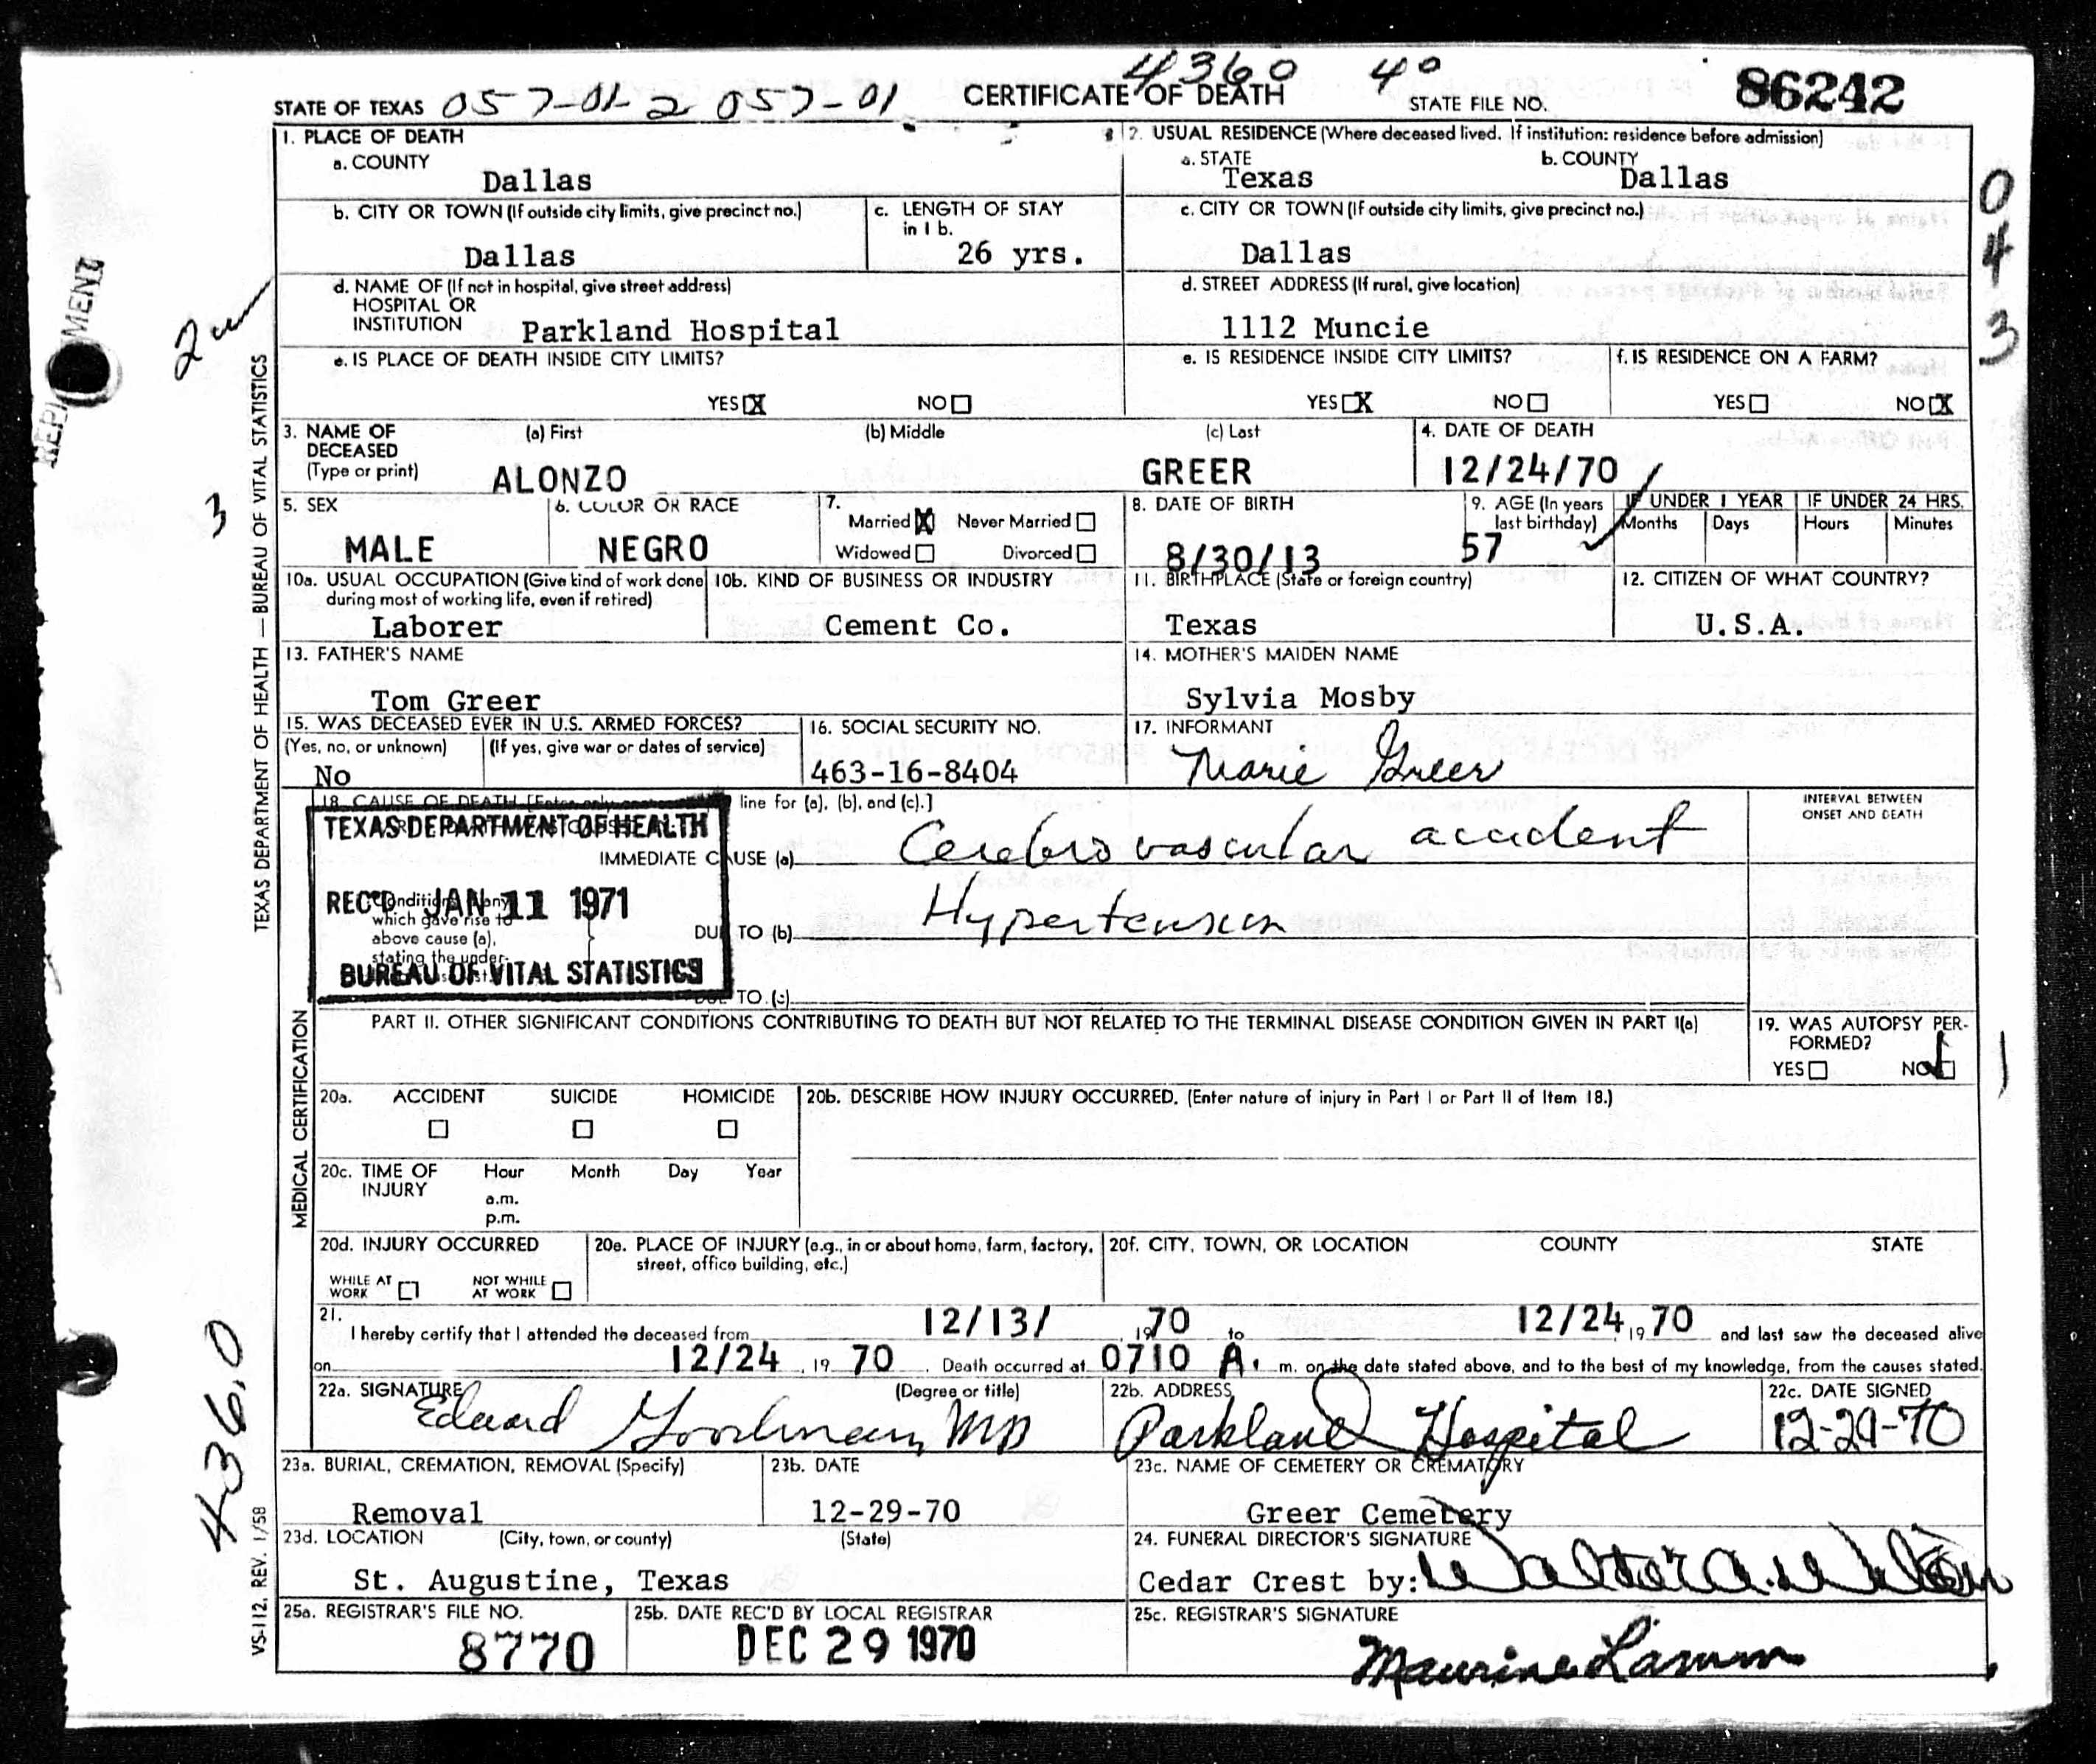 4360 4° 86242
STATE OF TEXAS 057-01-2 057-01 CERTIFICATE OF DEATH STATE FILE NO.
1. PLACE OF DEATH
a. COUNTY
Dallas
2. USUAL RESIDENCE (Where deceased lived. If institution: residence before admission)
a. STATE b. COUNTY
Texas Dallas
b. CITY OR TOWN (If outside city limits, give precinct no.)
Dallas
c. LENGTH OF STAY
in 1 b.
26 yrs.
c. CITY OR TOWN (If outside city limits, give precinct no.)
Dallas
d. NAME OF (If not in hospital, give street address)
HOSPITAL OR
INSTITUTION Parkland Hospital
d. STREET ADDRESS (If rural, give location)
1112 Muncie
e. IS PLACE OF DEATH INSIDE CITY LIMITS?
YES X NO
e. IS RESIDENCE INSIDE CITY LIMITS?
YES X NO
f. IS RESIDENCE ON A FARM?
YES NO X
0
4
3
3. NAME OF
DECEASED
(Type or print)
(a) First (b) Middle (c) Last
ALONZO GREER
4. DATE OF DEATH
12/24/70
5. SEX
MALE
6. COLOR OR RACE
NEGRO
7.
Married X Never Married
Widowed Divorced
8. DATE OF BIRTH
8/30/13
9. AGE (In years
last birthday)
57
IF UNDER 1 YEAR
Months Days
IF UNDER 24 HRS.
Hours Minutes
10a. USUAL OCCUPATION (Give kind of work done
during most of working life, even if retired)
Laborer
10b. KIND OF BUSINESS OR INDUSTRY
Cement Co.
11. BIRTHPLACE (State or foreign country)
Texas
12. CITIZEN OF WHAT COUNTRY?
U.S.A.
13. FATHER'S NAME
Tom Greer
14. MOTHER'S MAIDEN NAME
Sylvia Mosby
15. WAS DECEASED EVER IN U.S. ARMED FORCES?
(Yes, no, or unknown) (If yes, give war or dates of service)
No
16. SOCIAL SECURITY NO.
463-16-8404
17. INFORMANT
Marie Greer
18. CAUSE OF DEATH [Enter only one line for (a), (b), and (c).]
INTERVAL BETWEEN
ONSET AND DEATH
TEXAS DEPARTMENT OF HEALTH
REC'D JAN 11 1971
BUREAU OF VITAL STATISTICS
IMMEDIATE CAUSE (a) Cerebro vascular accident
Conditions, if any,
which gave rise to
above cause (a),
stating the under-
DUE TO (b) Hypertension
DUE TO (c)
PART II. OTHER SIGNIFICANT CONDITIONS CONTRIBUTING TO DEATH BUT NOT RELATED TO THE TERMINAL DISEASE CONDITION GIVEN IN PART I(a)
19. WAS AUTOPSY PER-
FORMED?
YES NO
1
20a. ACCIDENT SUICIDE HOMICIDE
20b. DESCRIBE HOW INJURY OCCURRED. (Enter nature of injury in Part I or Part II of Item 18.)
20c. TIME OF
INJURY
Hour Month Day Year
a.m.
p.m.
20d. INJURY OCCURRED
WHILE AT
WORK
NOT WHILE
AT WORK
20e. PLACE OF INJURY (e.g., in or about home, farm, factory,
street, office building, etc.)
20f. CITY, TOWN, OR LOCATION COUNTY STATE
21.
I hereby certify that I attended the deceased from 12/13/ , 1970 to 12/24, 19 70 and last saw the deceased alive
on 12/24 , 19 70 . Death occurred at 0710 A. m. on the date stated above, and to the best of my knowledge, from the causes stated.
22a. SIGNATURE (Degree or title)
Edward Goodman, MD
22b. ADDRESS
Parkland Hospital
22c. DATE SIGNED
12-29-70
23a. BURIAL, CREMATION, REMOVAL (Specify)
Removal
23b. DATE
12-29-70
23c. NAME OF CEMETERY OR CREMATORY
Greer Cemetery
23d. LOCATION (City, town, or county) (State)
St. Augustine, Texas
24. FUNERAL DIRECTOR'S SIGNATURE
Cedar Crest by:
25a. REGISTRAR'S FILE NO.
8770
25b. DATE REC'D BY LOCAL REGISTRAR
DEC 29 1970
25c. REGISTRAR'S SIGNATURE
Maurine Lamm
TEXAS DEPARTMENT OF HEALTH — BUREAU OF VITAL STATISTICS
MEDICAL CERTIFICATION
VS-112, REV. 1/58
3
436.0